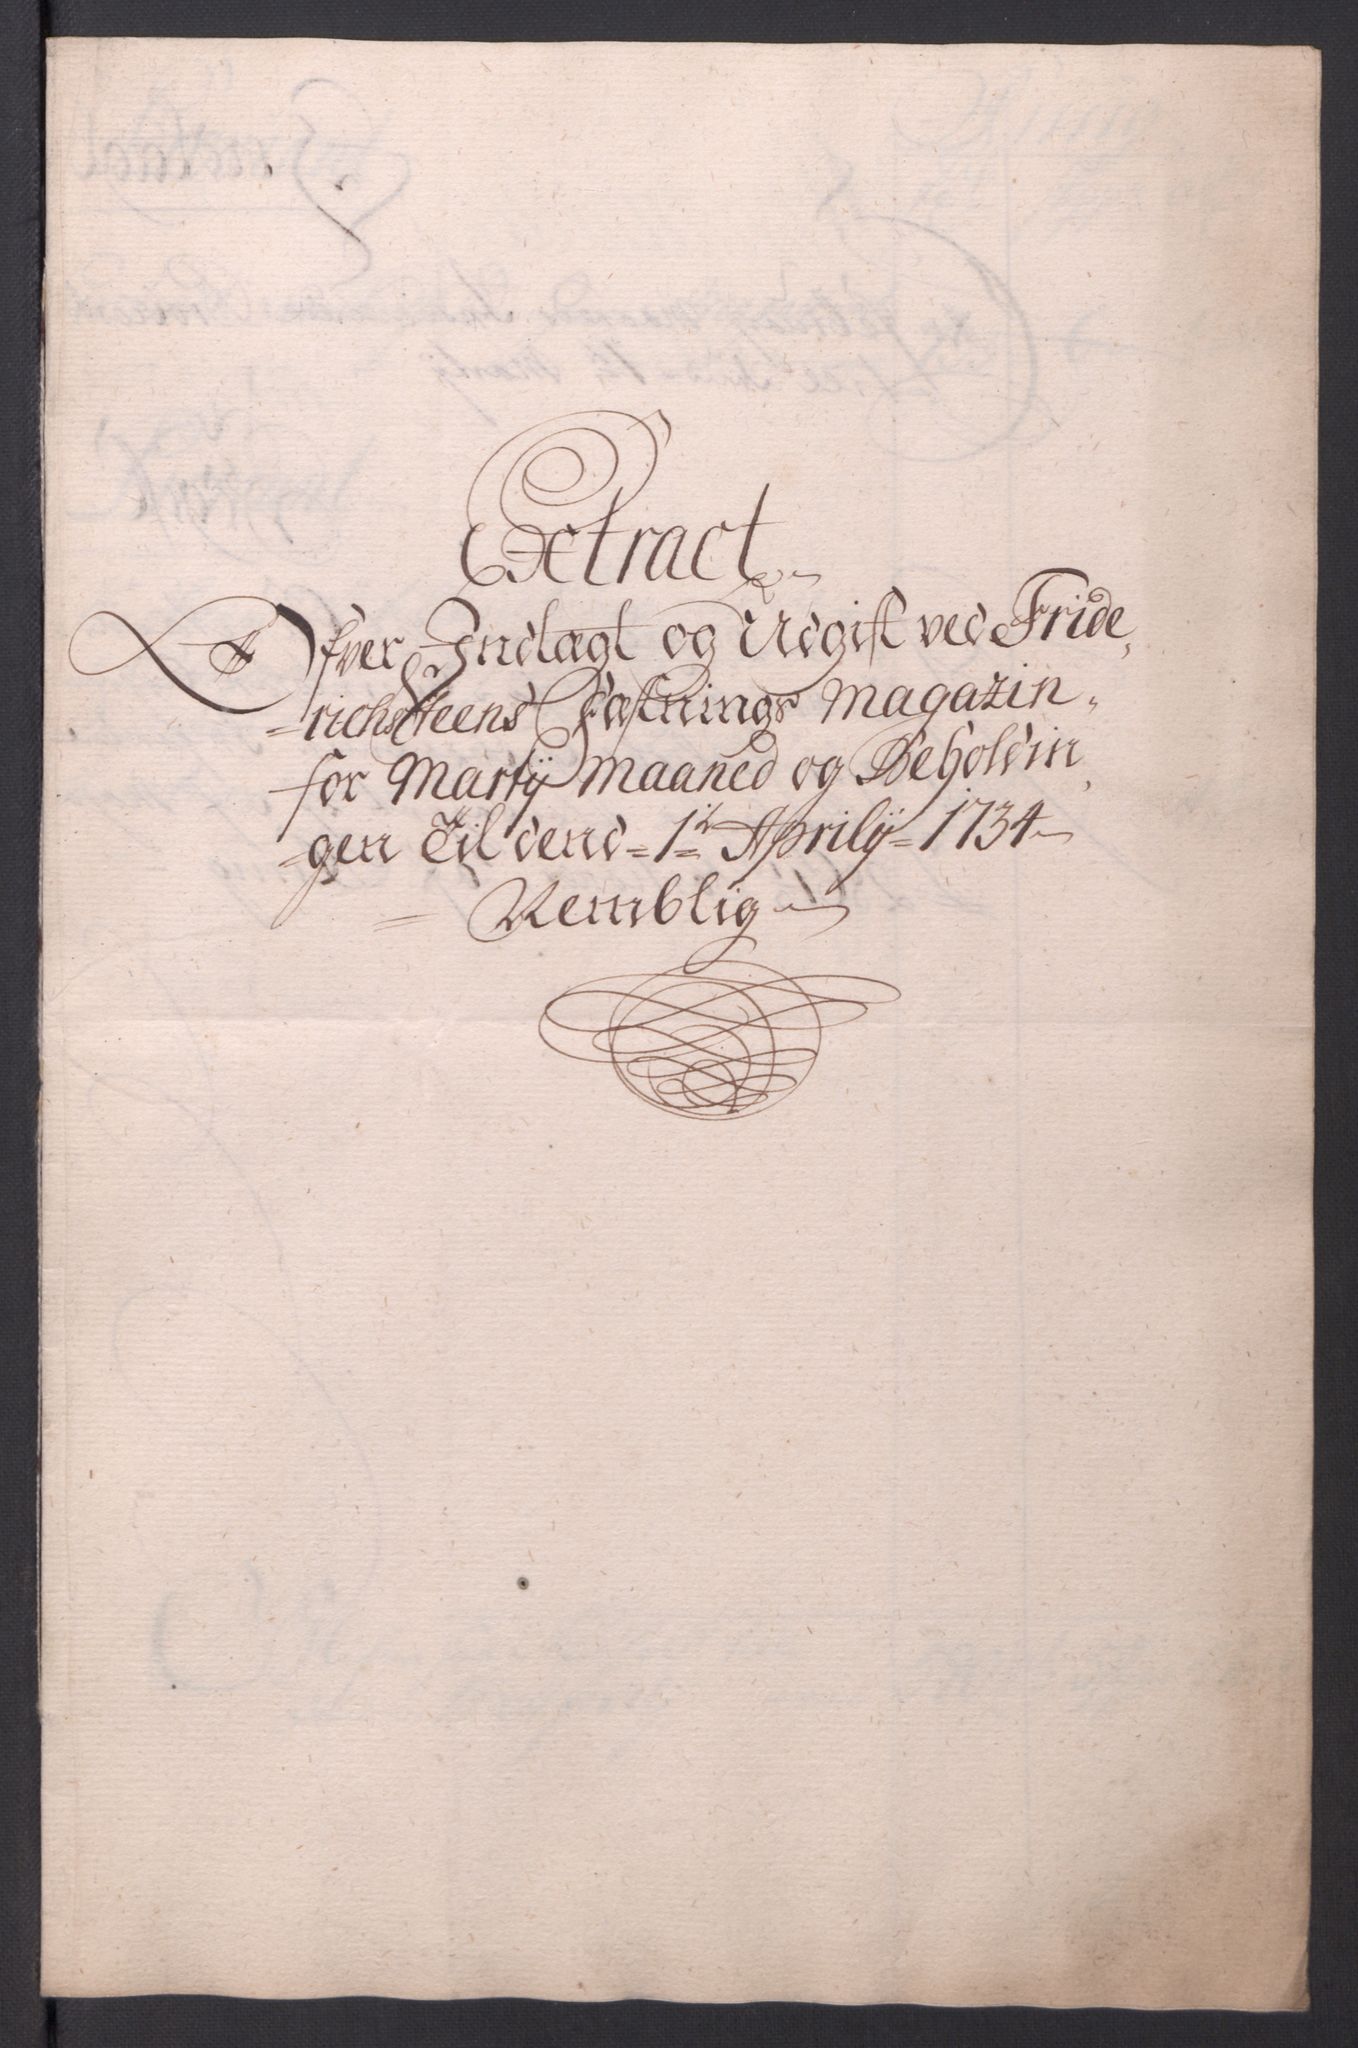 Extract
Ofver Indtægt og Udgift ved Fride,
=richsteens Fæstnings Magazin,
for Martij Maaned og Beholdin,
=gen Til dend = 1te Aprilij = 1734
= Nemblig